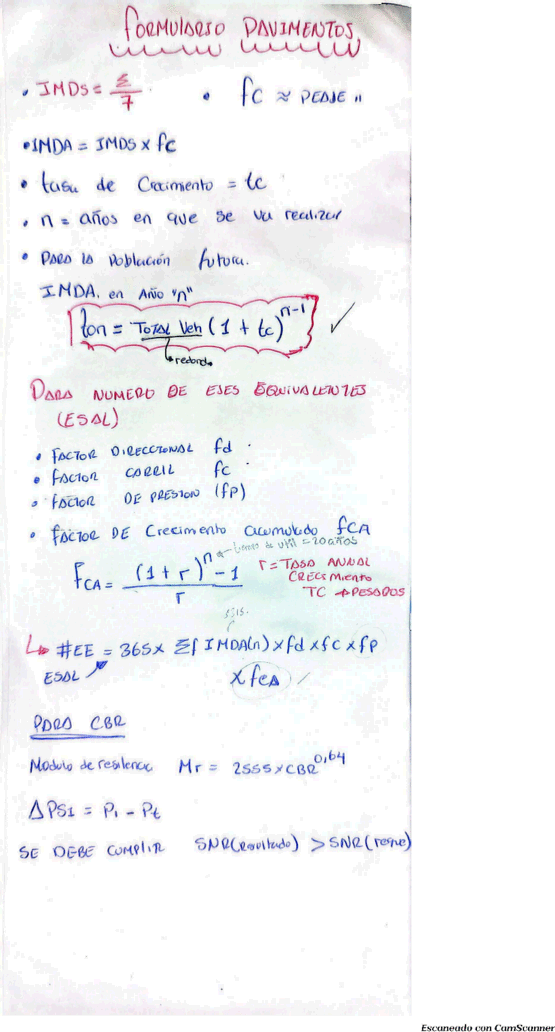 FORMULARIO PAVIMENTOS
• IMDS = Σ/7 • fc ≈ PEAJE "
• IMDA = IMDS x fc
• tasa de Crecimiento = tc
• n = años en que se va realizar
• PARA la Población futura.
IMDA. en Año "n"
Ton = TOTAL Veh (1 + tc)^n-1 ✓
→ redond.
PARA NUMERO DE EJES EQUIVALENTES
(ESAL)
• FACTOR DIRECCIONAL fd
• FACTOR CARRIL fc
• FACTOR DE PRESION (fP)
• FACTOR DE Crecimento acumulado fCA
= 20 años
FCA = (1 + r)^n - 1 / r
r = TASA ANUAL
CRECIMIENTO
TC → PESADOS
↳ #EE = 365 x Σf IMDA(n) x fd x fc x fp
ESAL x fcA
PARA CBR
Modulo de resilencia Mr = 2555 x CBR^0,64
Δ PSI = Pi - Pt
SE DEBE CUMPLIR SNR(resultado) > SNR(reque)
Escaneado con CamScanner